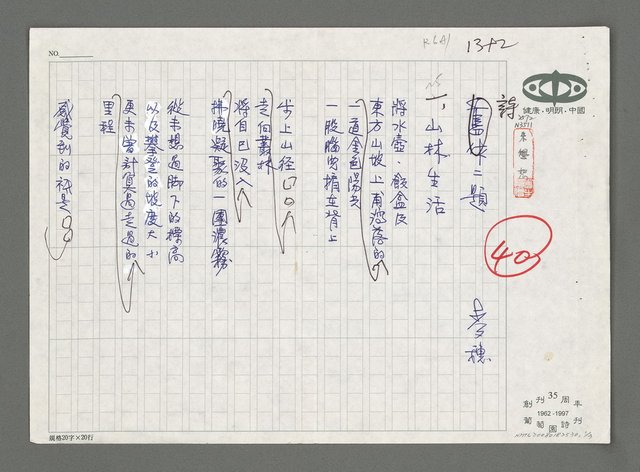 NO.
R6A1
13+2
詩
二題
一、山林生活
將水壺、飯盒及
東方山坡上甫瀉落的
一道金色陽光
一股腦兒揹在背上
步上山徑
走向叢林
將自己沒入
拂曉凝聚的一團濃霧
從未想過腳下的標高
以及攀登的坡度大小
更未曾計算過走過的
里程
感覺到的祇是
麥穗
40
健康・明朗・中國
創刊35周年
1962-1997
葡萄園詩刊
規格20字×20行